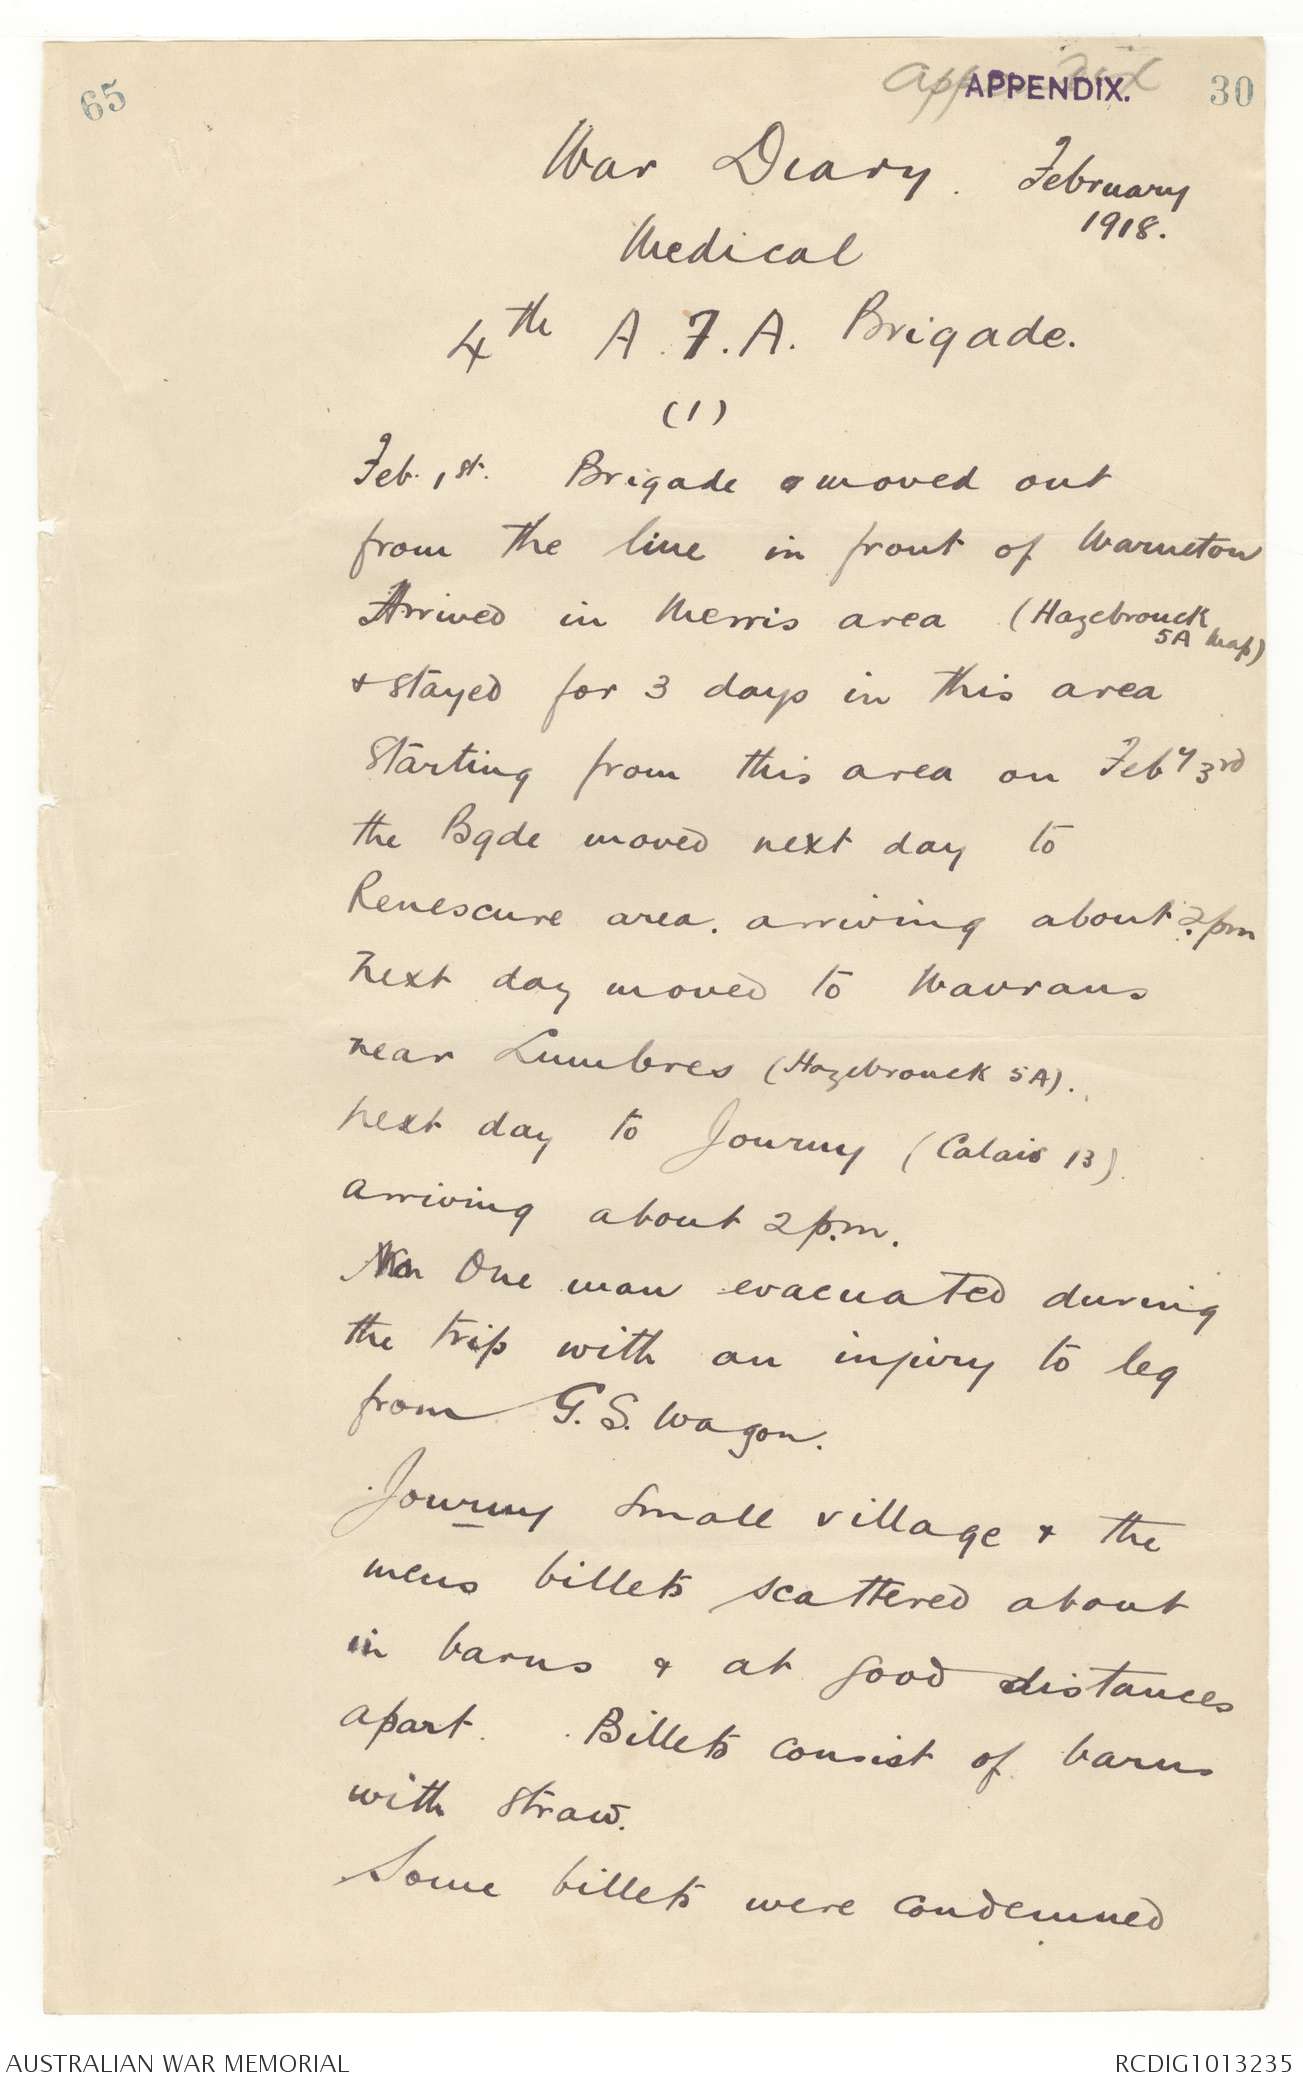 65
APPENDIX.
30
War Diary. February
1918.
Medical
4th A.F.A. Brigade.
(1)
Feb. 1st. Brigade moved out
from the line in front of Warneton
Arrived in Merris area (Hazebrouck
5A Map)
& stayed for 3 days in this area
Starting from this area on Feby 3rd
the Bgde moved next day to
Renescure area. arriving about 2pm
Next day moved to Wavrans
near Lumbres (Hazebrouck 5A).
next day to Journy (Calais 13).
arriving about 2 p.m.
One man evacuated during
the trip with an injury to leg
from G.S. Wagon.
Journy small village & the
mens billets scattered about
in barns & at good distances
apart. Billets consist of barns
with straw.
Some billets were condemned
AUSTRALIAN WAR MEMORIAL
RCDIG1013235